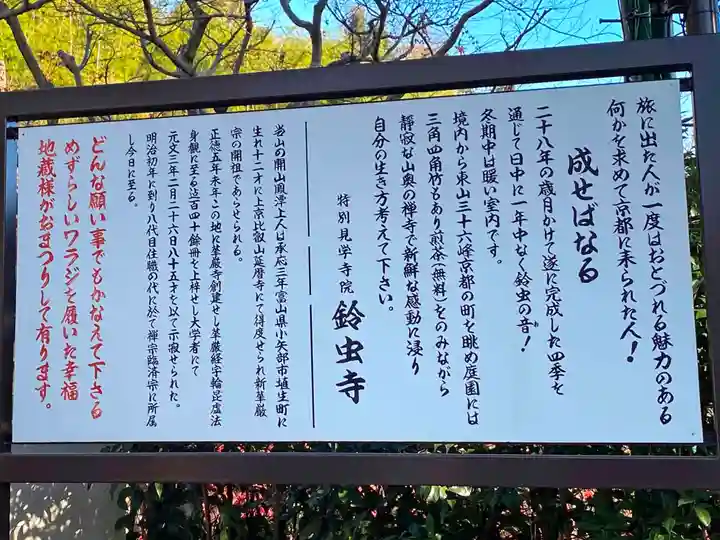 旅に出た人が一度はおとづれる魅力のある
何かを求めて京都に来られた人！
成せばなる
二十八年の歳月かけて遂に完成した四季を
通じて日中に一年中なく鈴虫の音！
冬期中は暖い室内です。
境内から東山三十六峰京都の町を眺め庭園には
三角四角竹もあり煎茶(無料)をのみながら
静寂な山奥の禅寺で新鮮な感動に浸り
自分の生き方考えて下さい。
特別見学寺院 鈴虫寺
当山の開山鳳潭上人は承応三年富山県小矢部市埴生町に
生れ十二才に上京比叡山延暦寺にて得度せられ新華厳
宗の開祖であらせられる。
正徳五年未年この地に華厳寺創建せし華厳経宇輪毘盧法
身観に至る迄百四十餘冊を上梓せし大学者にて
元文三年二月二十六日八十五才を以て示寂せられた。
明治初年に到り八代目住職の代に於て禅宗臨済宗に所属
し今日に至る。
どんな願い事でもかなえて下さる
めずらしいワラジを履いた幸福
地蔵様がおまつりして有ります。